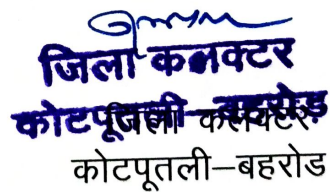 जिला कलक्टर
कोटपूतली–बहरोड़
जिला कलक्टर
कोटपूतली–बहरोड